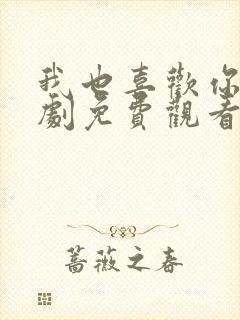 我也喜歡你
劇免費觀看
薔薇之春